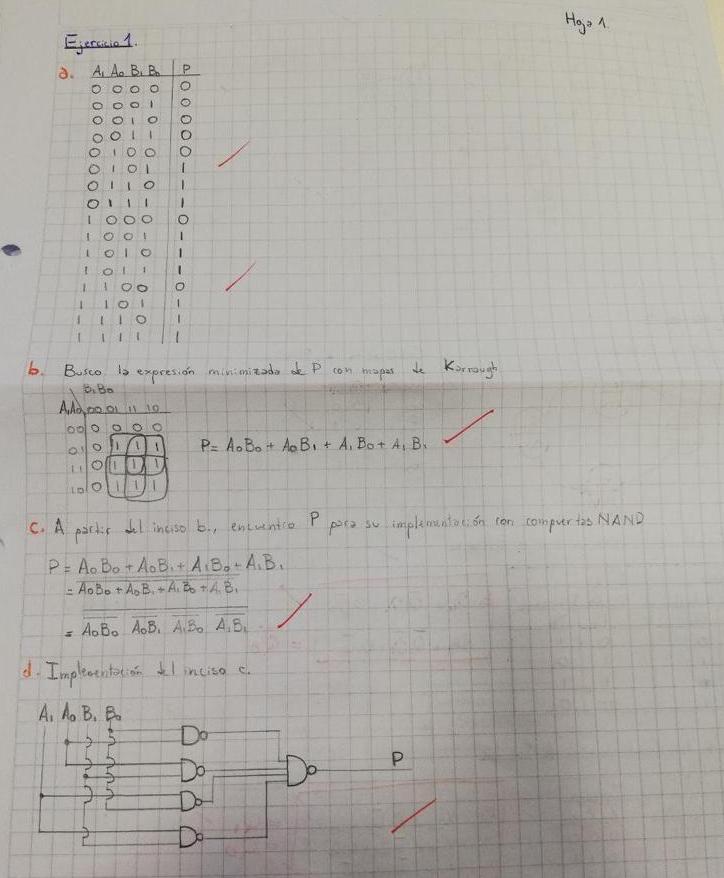 Hoja 1.
Ejercicio 1.
a. A₁ A₀ B₁ B₀ | P
0 0 0 0 | 0
0 0 0 1 | 0
0 0 1 0 | 0
0 0 1 1 | 0
0 1 0 0 | 0
0 1 0 1 | 1
0 1 1 0 | 1
0 1 1 1 | 1
1 0 0 0 | 0
1 0 0 1 | 1
1 0 1 0 | 1
1 0 1 1 | 1
1 1 0 0 | 0
1 1 0 1 | 1
1 1 1 0 | 1
1 1 1 1 | 1
b. Busco la expresión minimizada de P con mapas de Karnaugh
B₁B₀
A₁A₀ 00 01 11 10
00 0 0 0 0
01 0 1 1 1
11 0 1 1 1
10 0 1 1 1
P= A₀B₀ + A₀B₁ + A₁B₀ + A₁B₁
c. A partir del inciso b., encuentro P para su implementación con compuertas NAND
P = A₀B₀ + A₀B₁ + A₁B₀ + A₁B₁
= A₀B₀ + A₀B₁ + A₁B₀ + A₁B₁
= A₀B₀ A₀B₁ A₁B₀ A₁B₁
d. Implementación del inciso c.
A₁ A₀ B₁ B₀
P